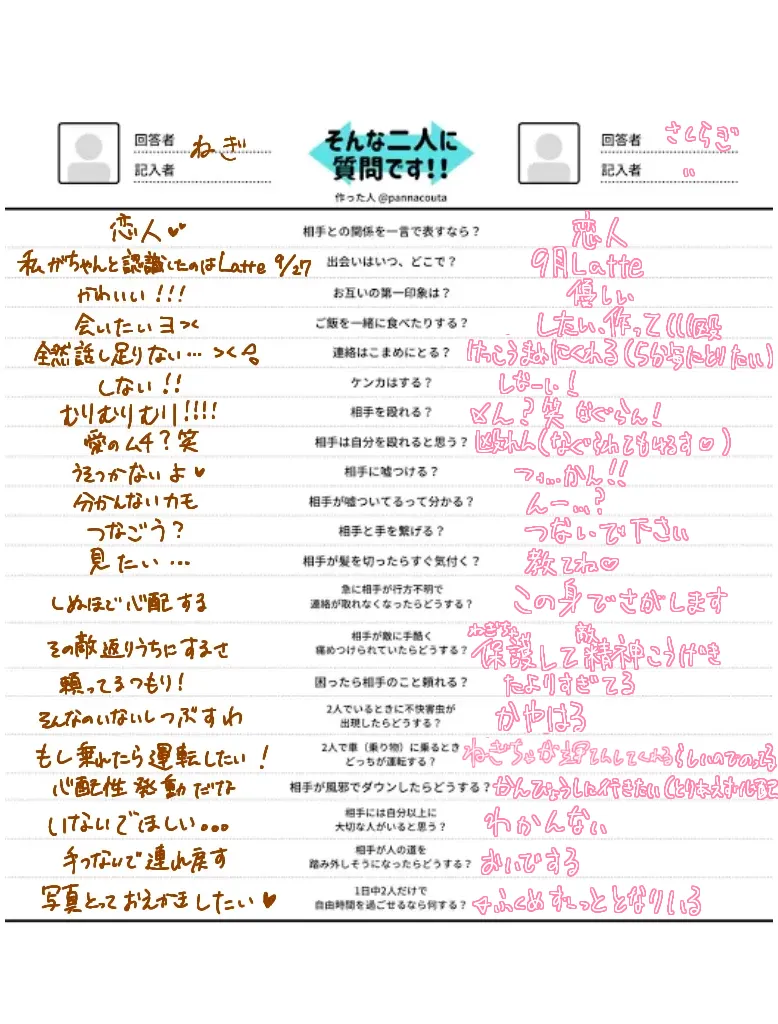 回答者 ねぎ
記入者
そんな二人に
質問です!!
作った人 @pannacouta
回答者 さくらぎ
記入者 〃
恋人♥♥ 相手との関係を一言で表すなら？ 恋人
私がちゃんと認識したのはLatte 9/27 出会いはいつ、どこで？ 9月Latte
かわいい!!! お互いの第一印象は？ 優しい
会いたいヨ＞＜ ご飯を一緒に食べたりする？ したい、作って(((殴
全然話し足りない…＞＜ 連絡はこまめにとる？ けっこうまめにくれる(
しない!! ケンカはする？ しなーい!
むりむりむり!!!! 相手を殴れる？ ん？笑 なぐらん!
愛のムチ？笑 相手は自分を殴れると思う？ (なぐられてもゆるす♡)
うそつかないよ♥ 相手に嘘つける？ つ…かん!!
分かんないカモ 相手が嘘ついてるって分かる？ んー…?
つなごう？ 相手と手を繋げる？ つないで下さい
見たい… 相手が髪を切ったらすぐ気付く？ 教てね♡
しぬほど心配する
急に相手が行方不明で
連絡が取れなくなったらどうする？
この身でさがします
その敵返りうちにするさ
相手が敵に手酷く
痛めつけられていたらどうする？
ねぎちゃ 敵
保護して精神こうげき
頼ってるつもり! 困ったら相手のこと頼れる？ たよりすぎてる
そんなのいないしつぶすわ
2人でいるときに不快害虫が
出現したらどうする？
かやはる
もし乗れたら運転したい!
2人で車（乗り物）に乗るとき
どっちが運転する？
ねぎちゃが運てんしてくれるらしいのでのる
心配性発動だな 相手が風邪でダウンしたらどうする？ かんびょうしに行きたい(とりまえず心配
いないでほしい。。。
相手には自分以上に
大切な人がいると思う？
わかんない
手つないで連れ戻す
相手が人の道を
踏み外しそうになったらどうする？
おいでする
写真とっておえかきしたい♥
1日中2人だけで
自由時間を過ごせるなら何する？
ふくめずーっととなりいる